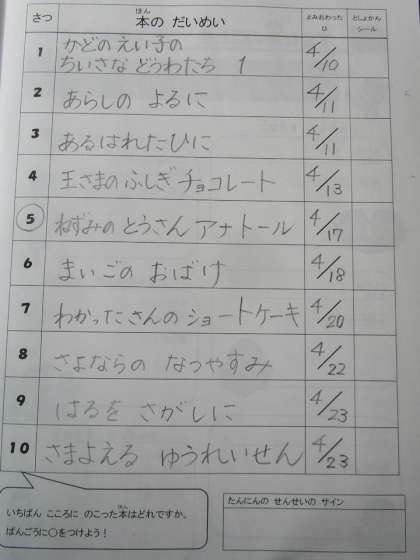 さつ 本(ほん)の だいめい よみおわった ひ としょかん シール
1 かどの えい子の
ちいさな どうわたち 1 4/10
2 あらしの よるに 4/11
3 あるはれたひに 4/11
4 王さまのふしぎチョコレート 4/13
5 ねずみの とうさん アナトール 4/17
6 まいごの おばけ 4/18
7 わかったさんの ショートケーキ 4/20
8 さよならの なつやすみ 4/22
9 はるを さがしに 4/23
10 さまよえる ゆうれいせん 4/23
いちばん こころに のこった本(ほん)はどれですか。
ばんごうに○をつけよう！
たんにんの せんせいの サイン